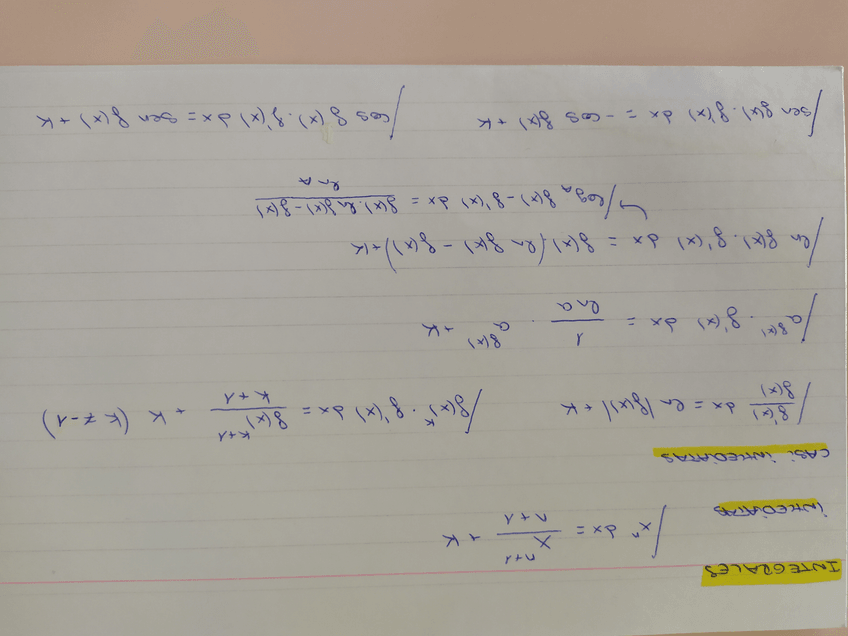 INTEGRALES
inmediatas ∫xⁿ dx = xⁿ⁺¹/(n+1) + k
casi inmediatas
∫g'(x)/g(x) dx = ln|g(x)| + k ∫g(x)ᵏ · g'(x) dx = g(x)ᵏ⁺¹/(k+1) + k (k ≠ -1)
∫a^g(x) · g'(x) dx = 1/ln a · a^g(x) + k
∫ln g(x) · g'(x) dx = g(x)(ln g(x) - g(x)) + k
↳ ∫logₐ g(x) - g'(x) dx = (g(x) · ln g(x) - g(x))/ln A
∫sen g(x) · g'(x) dx = - cos g(x) + k ∫cos g(x) · g'(x) dx = sen g(x) + k